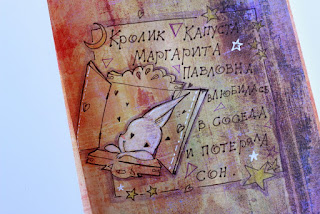 Кролик Капуста
Маргарита
Павловна
влюбилась
в соседа
и потеряла
сон.